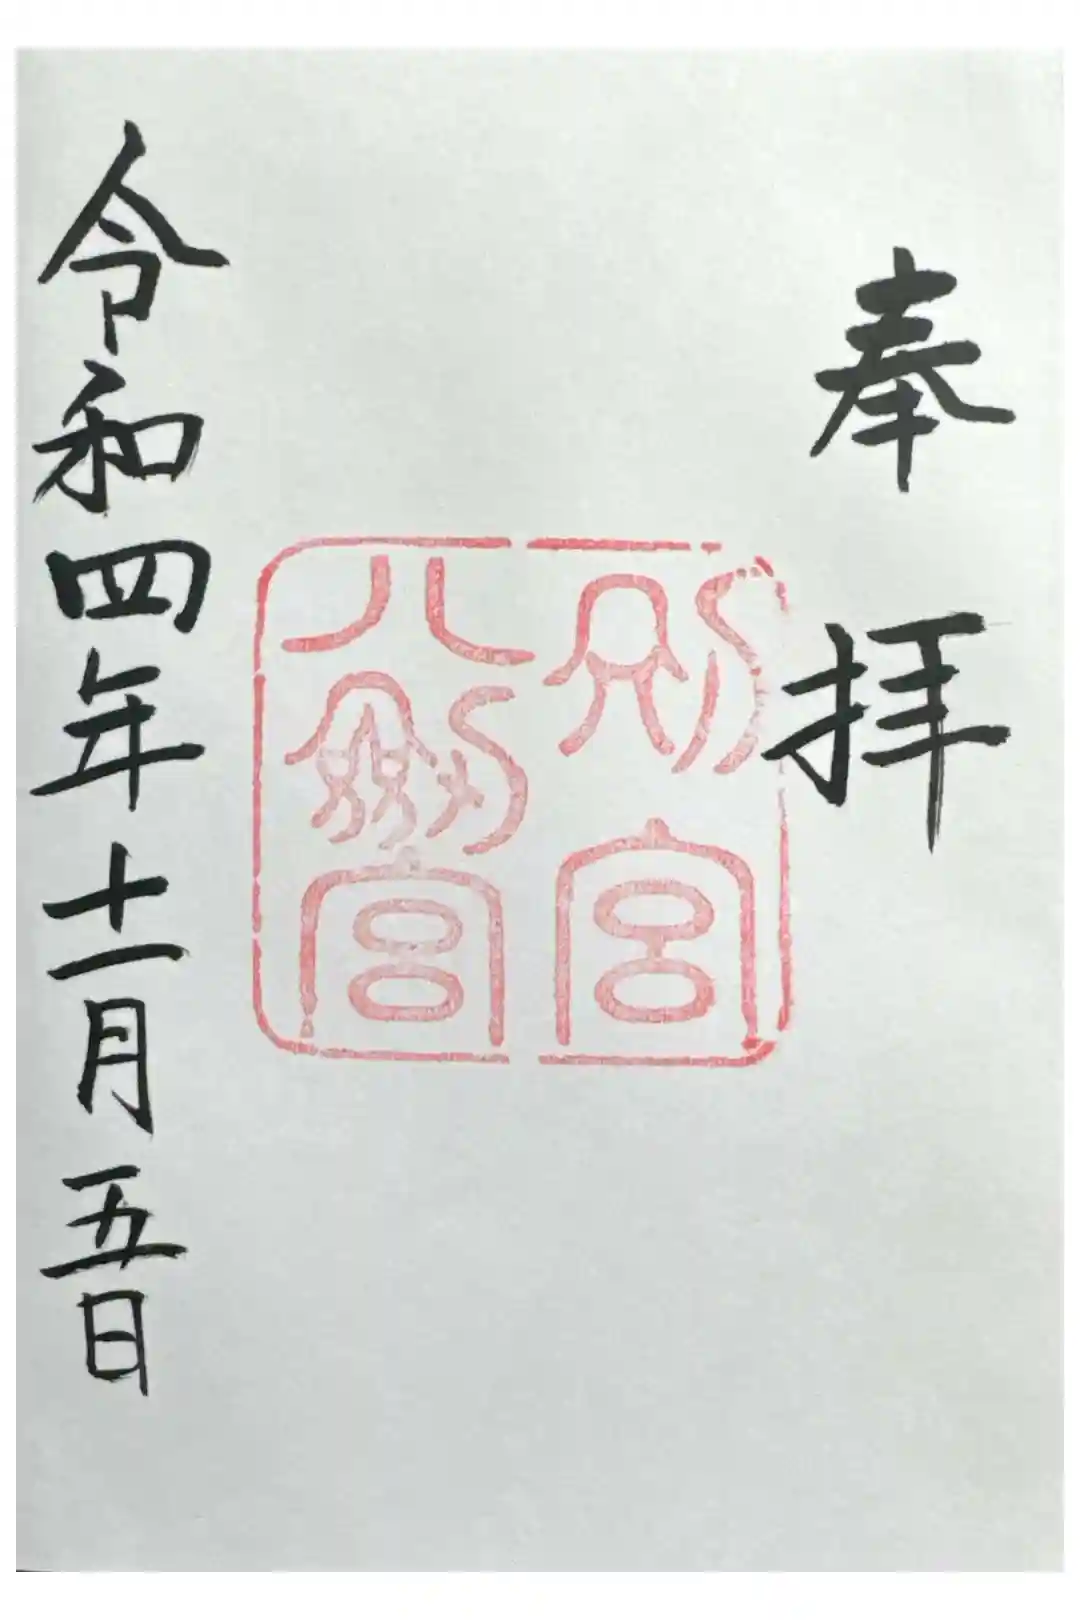 奉拝
別宮
八劔宮
令和四年十一月五日